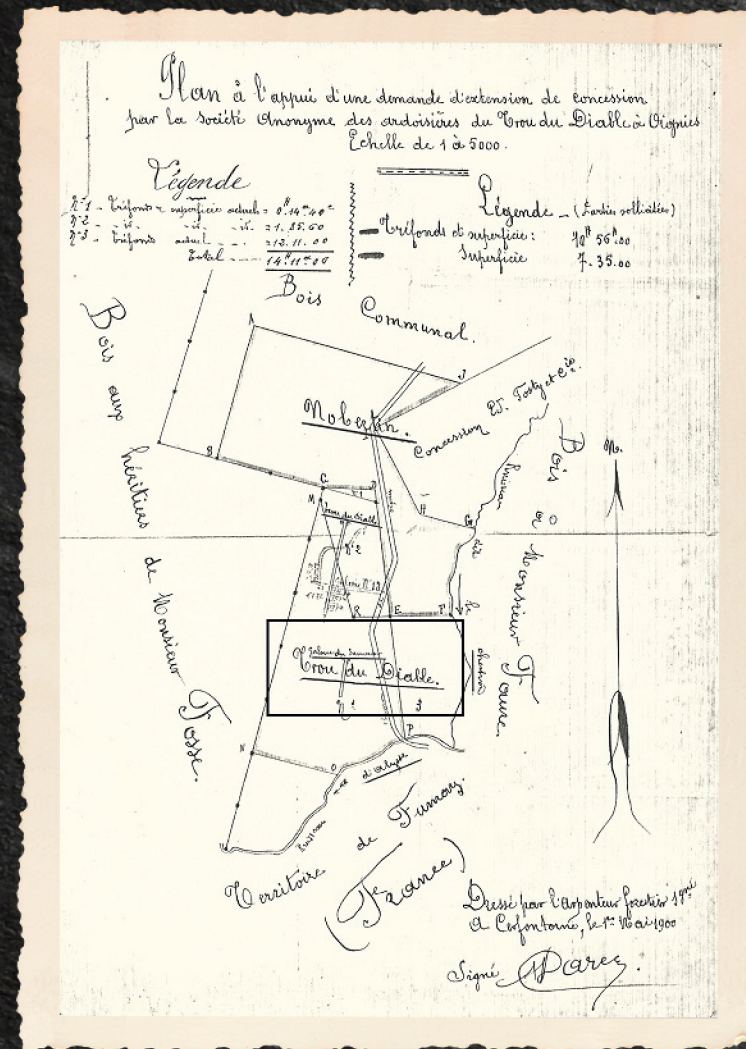 Plan à l'appui d'une demande d'extension de concession
par la Société Anonyme des ardoisières du Trou du Diable à Oignies
Echelle de 1 à 5000.
Légende
N° 1 - Tréfonds & superficie actuels = 0H.14a.40c
N° 2 - id. - id. = 1.85.60
N° 3 - Tréfonds actuel - = 12.11.00
Total = 14H11a00
Légende - (Parties sollicitées)
Tréfonds et superficie : 10H 56a.00
Superficie 7.35.00
Bois Communal.
Bois aux héritiers de Monsieur Fosse.
A
J
Nobertin.
Concession Ed. Fosty et Cie.
Bois à Monsieur Faure.
N.
B
C
D
M
H
G
Trou du Diable
N° 2
Ruisseau dit
R
E
F
Trou du Diable.
N° 1
3
P
N
O
Ruisseau d'alyse
Territoire de Fumay.
(France)
Dressé par l'Arpenteur forestier
A Cerfontaine, le 1er Mai 1900
Signé